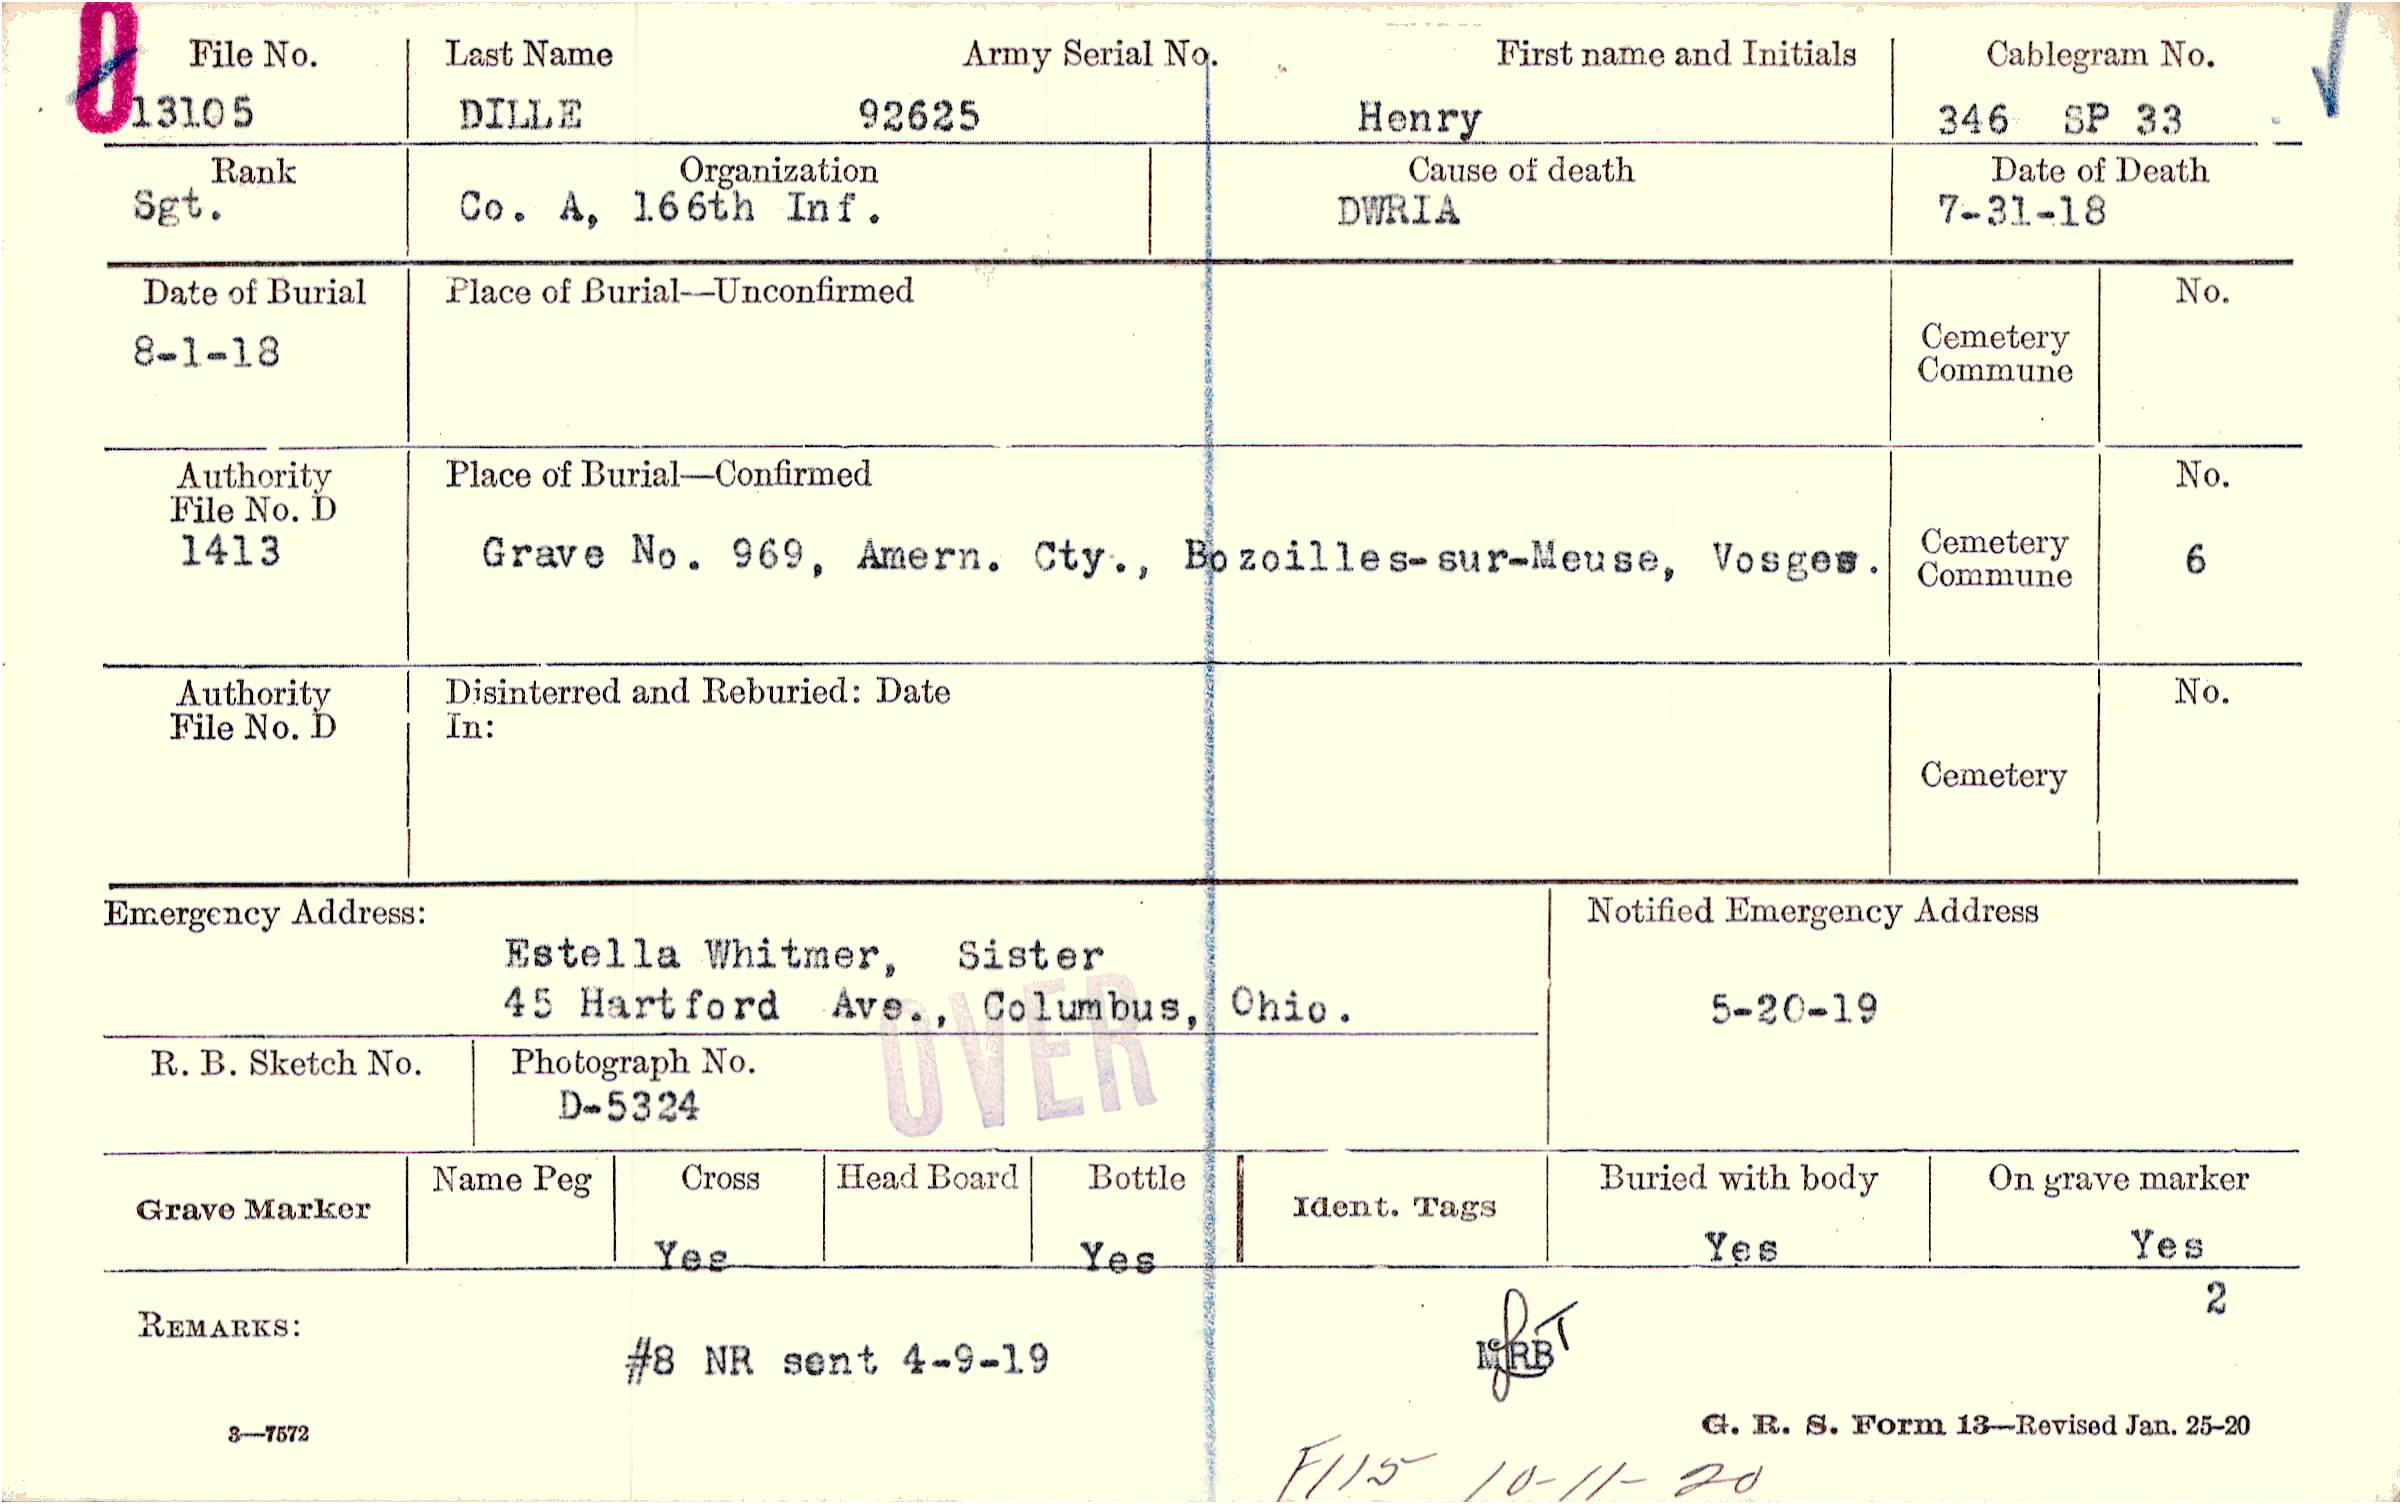 O
File No. Last Name Army Serial No. First name and Initials Cablegram No.
13105 DILLE 92625 Henry 346 SP 33
Rank Organization Cause of death Date of Death
Sgt. Co. A, 166th Inf. DWRIA 7-31-18
Date of Burial Place of Burial—Unconfirmed No.
8-1-18 Cemetery
Commune
Authority Place of Burial—Confirmed No.
File No. D
1413 Grave No. 969, Amern. Cty., Bozoilles-sur-Meuse, Vosges. Cemetery 6
Commune
Authority Disinterred and Reburied: Date No.
File No. D In:
Cemetery
Emergency Address: Notified Emergency Address
Estella Whitmer, Sister
45 Hartford Ave., Columbus, Ohio. 5-20-19
OVER
R. B. Sketch No. Photograph No.
D-5324
Grave Marker Name Peg Cross Head Board Bottle Ident. Tags Buried with body On grave marker
Yes Yes Yes Yes
2
REMARKS:
#8 NR sent 4-9-19
3—7572 G. R. S. Form 13—Revised Jan. 25-20
F115 10-11-20